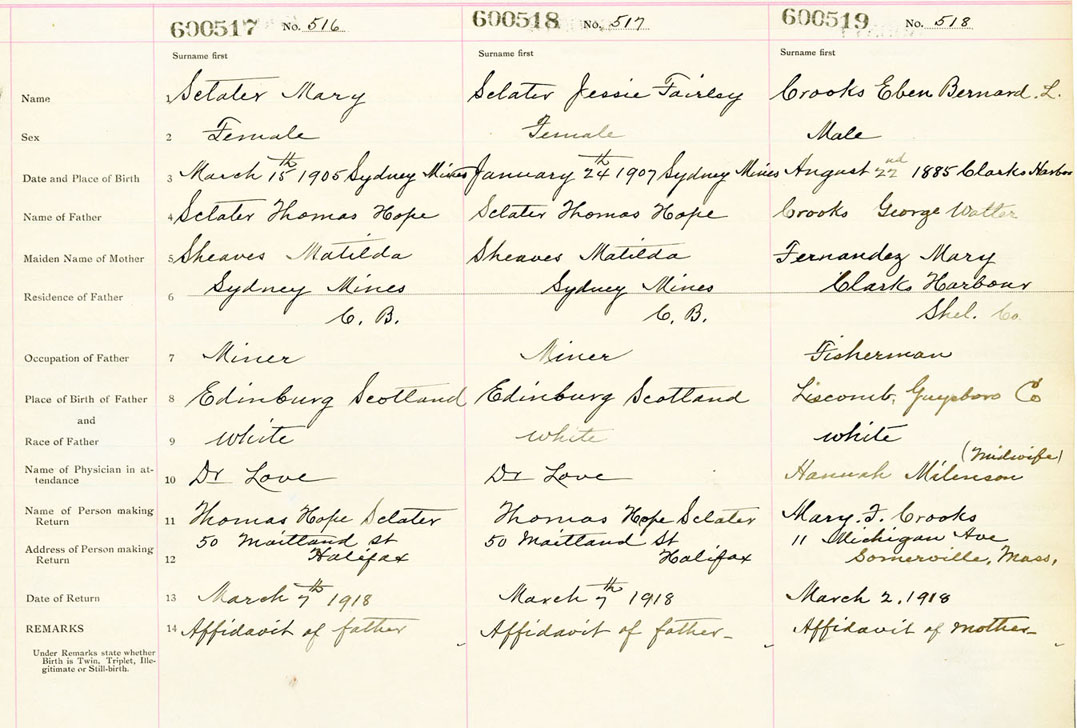 600517 No. 516 600518 No. 517 600519 No. 518
Surname first Surname first Surname first
Name 1 Sclater Mary Sclater Jessie Fairley Crooks Eben Bernard. L.
Sex 2 Female Female Male
Date and Place of Birth 3 March 15th 1905 Sydney Mines January 24th 1907 Sydney Mines August 22nd 1885 Clarks Harbor
Name of Father 4 Sclater Thomas Hope Sclater Thomas Hope Crooks George Walter
Maiden Name of Mother 5 Sheaves Matilda Sheaves Matilda Fernandez Mary
Residence of Father 6 Sydney Mines Sydney Mines Clarks Harbour
C. B. C. B. Shel. Co.
Occupation of Father 7 Miner Miner Fisherman
Place of Birth of Father 8 Edinburg Scotland Edinburg Scotland Liscomb, Guysboro Co
and
Race of Father 9 white white white
Name of Physician in at- (Midwife)
tendance 10 Dr Love Dr Love Hannah
Name of Person making
Return 11 Thomas Hope Sclater Thomas Hope Sclater Mary. F. Crooks
Address of Person making 50 Maitland St 50 Maitland St 11 Michigan Ave
Return 12 Halifax Halifax Somerville, Mass,
Date of Return 13 March 7th 1918 March 7th 1918 March 2, 1918
REMARKS 14 Affidavit of father Affidavit of father Affidavit of mother
Under Remarks state whether
Birth is Twin, Triplet, Ille-
gitimate or Still-birth.